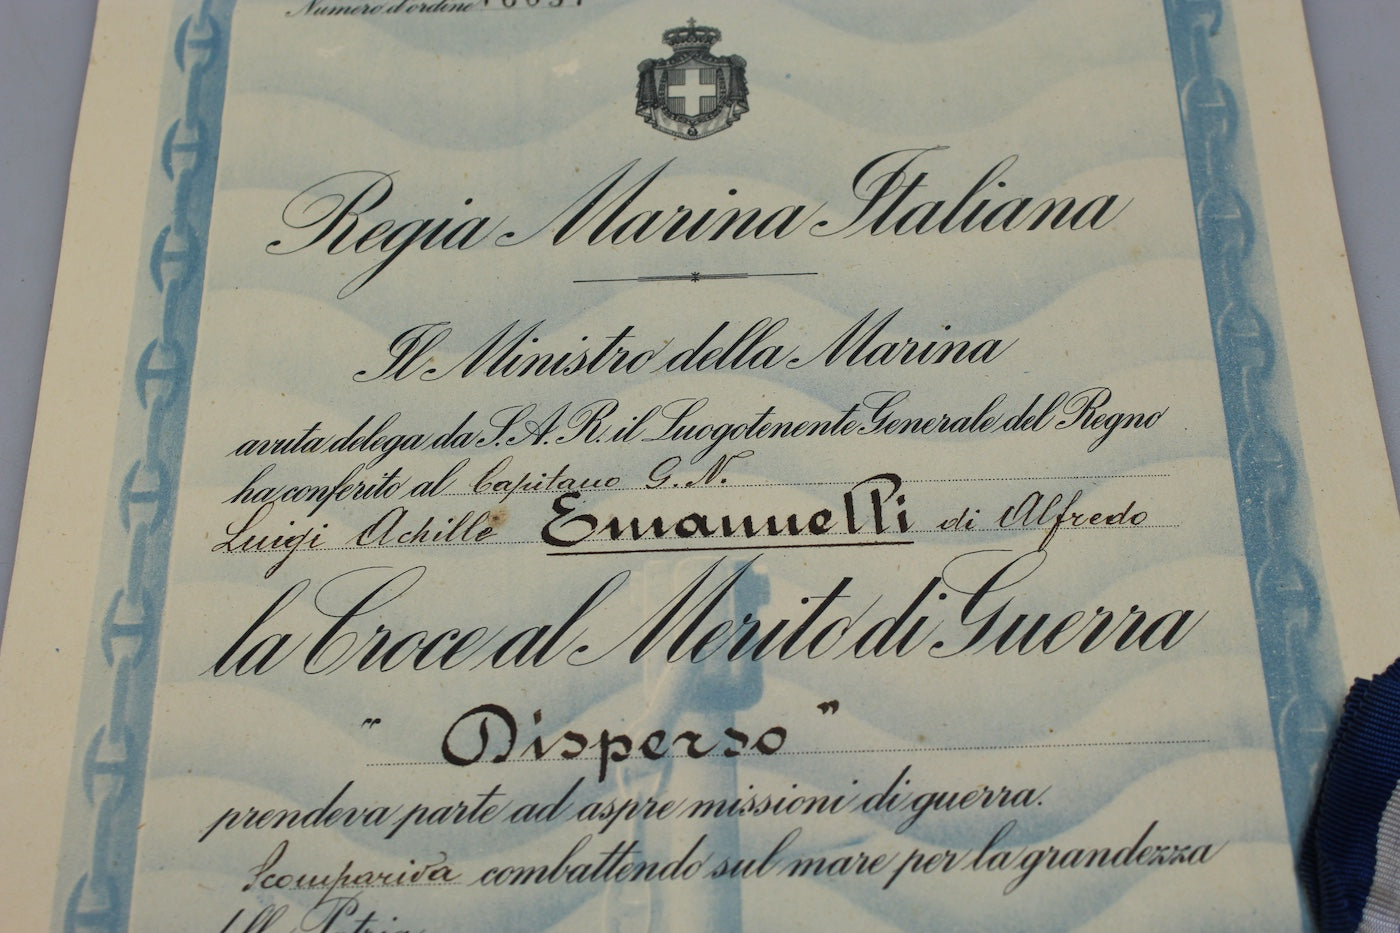 Numero d'ordine
Regia Marina Italiana
Il Ministro della Marina
avuta delega da S. A. R. il Luogotenente Generale del Regno
ha conferito al Capitano G. N.
Luigi Achille Emanuelli di Alfredo
la Croce al Merito di Guerra
"Disperso"
prendeva parte ad aspre missioni di guerra.
Scompariva combattendo sul mare per la grandezza
Patria